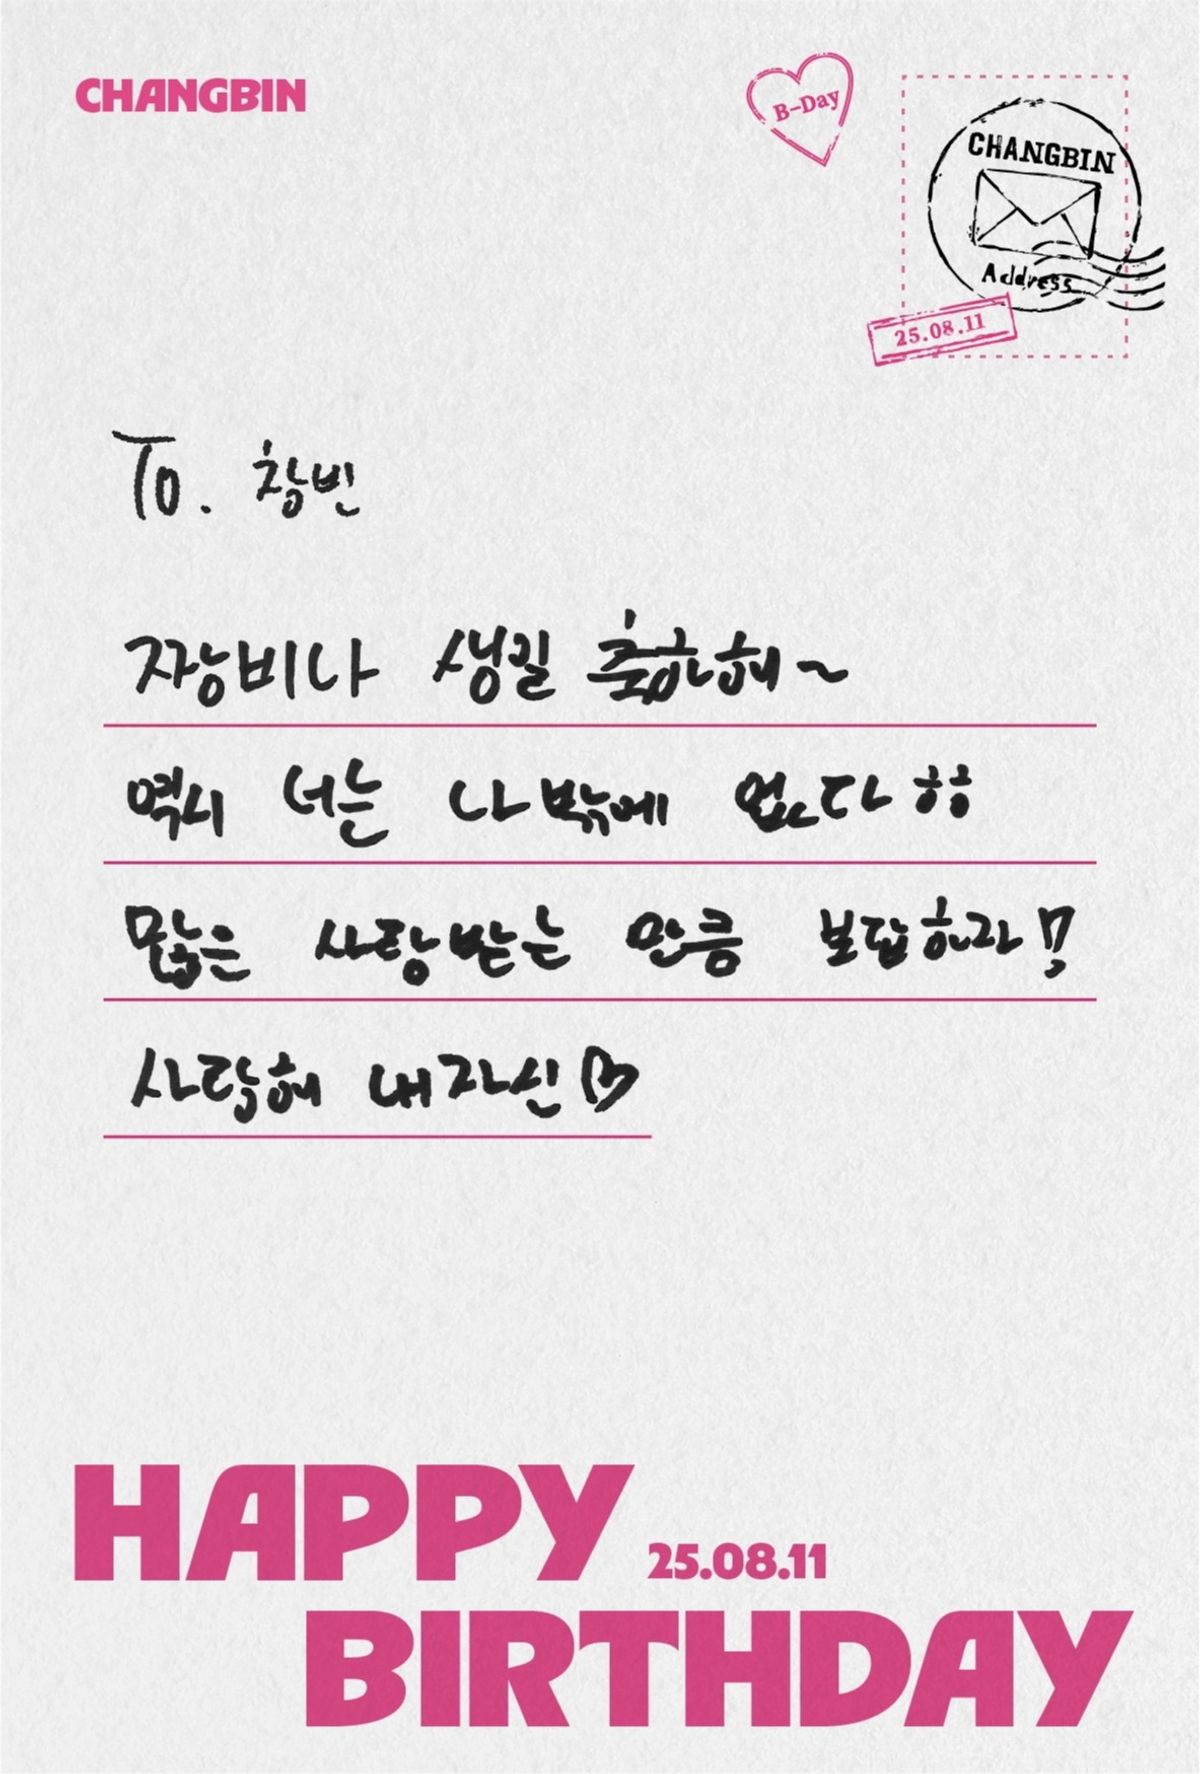 CHANGBIN
B-Day
CHANGBIN
Address
25.08.11
To. 창빈
짜앙비나 생일 축하해~
역시 너는 나밖에 없다 ㅎㅎ
많은 사랑받는 만큼 보답하자!!
사랑해 내자신♡
HAPPY
25.08.11
BIRTHDAY